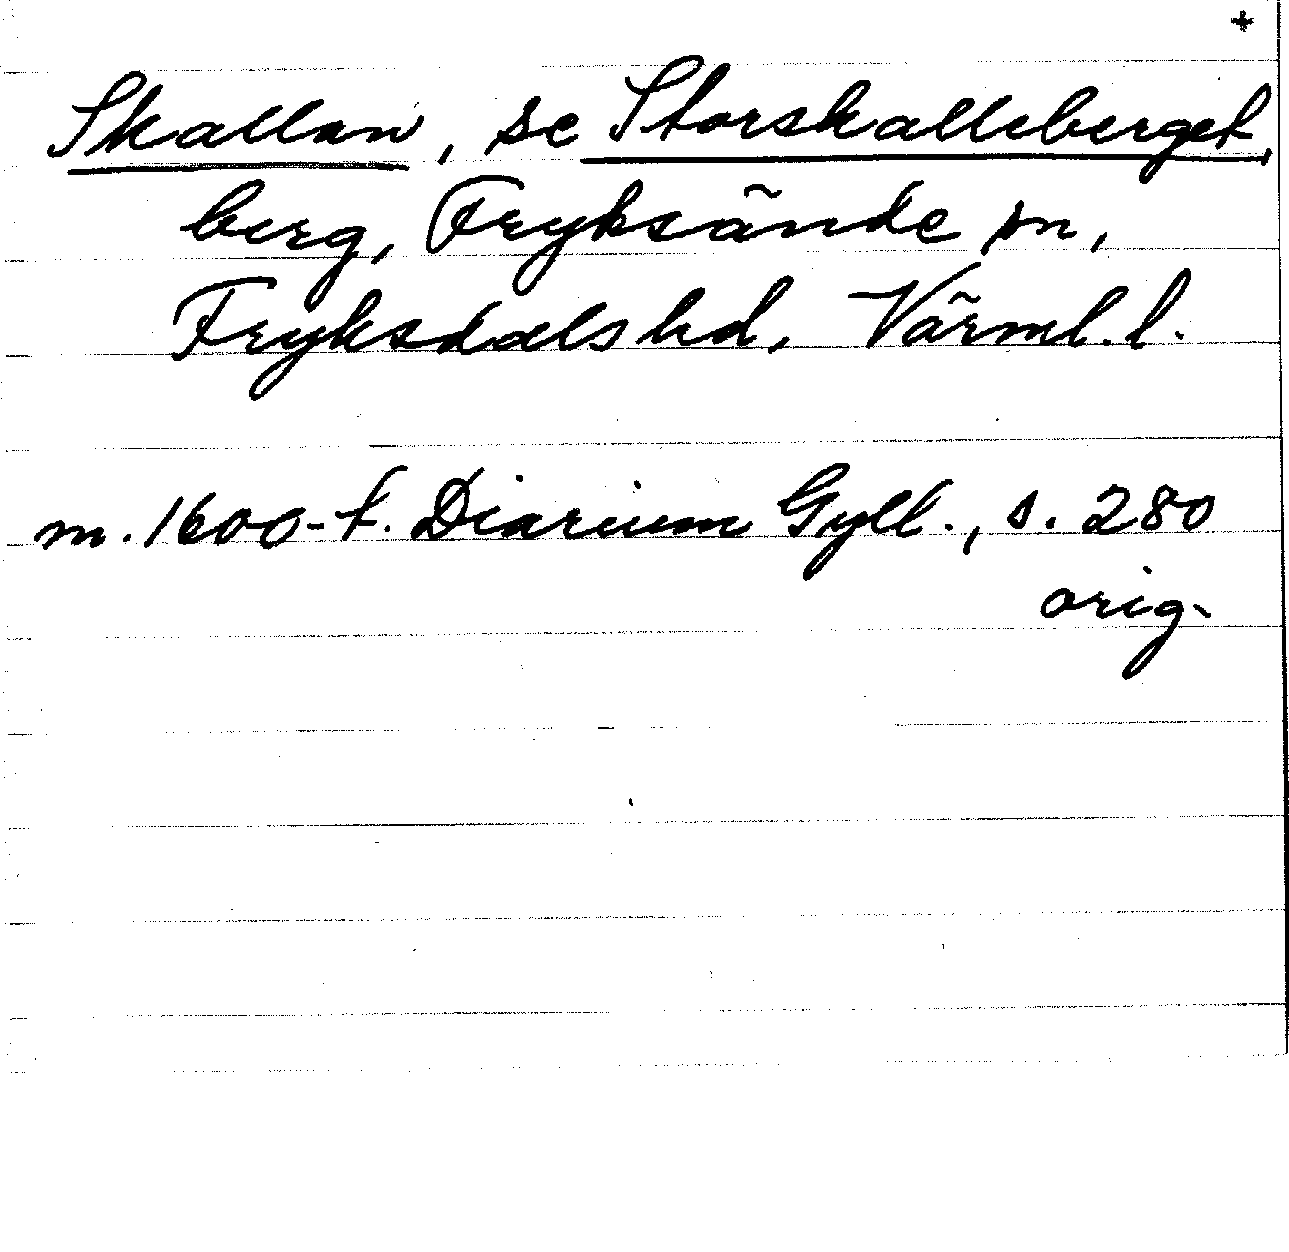 +
Skallan, se Storskalleberget,
berg, Fryksände sn,
Fryksdals hd, Värml. l.
m. 1600-t. Diarium Gyll., s. 280
orig.